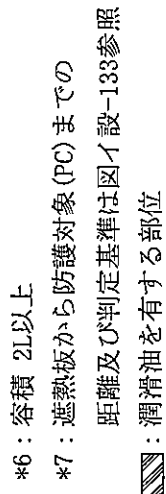 *6：容積 2L以上
*7：遮熱板から防護対象(PC)までの
距離及び判定基準は図イ設-133参照
：潤滑油を有する部位